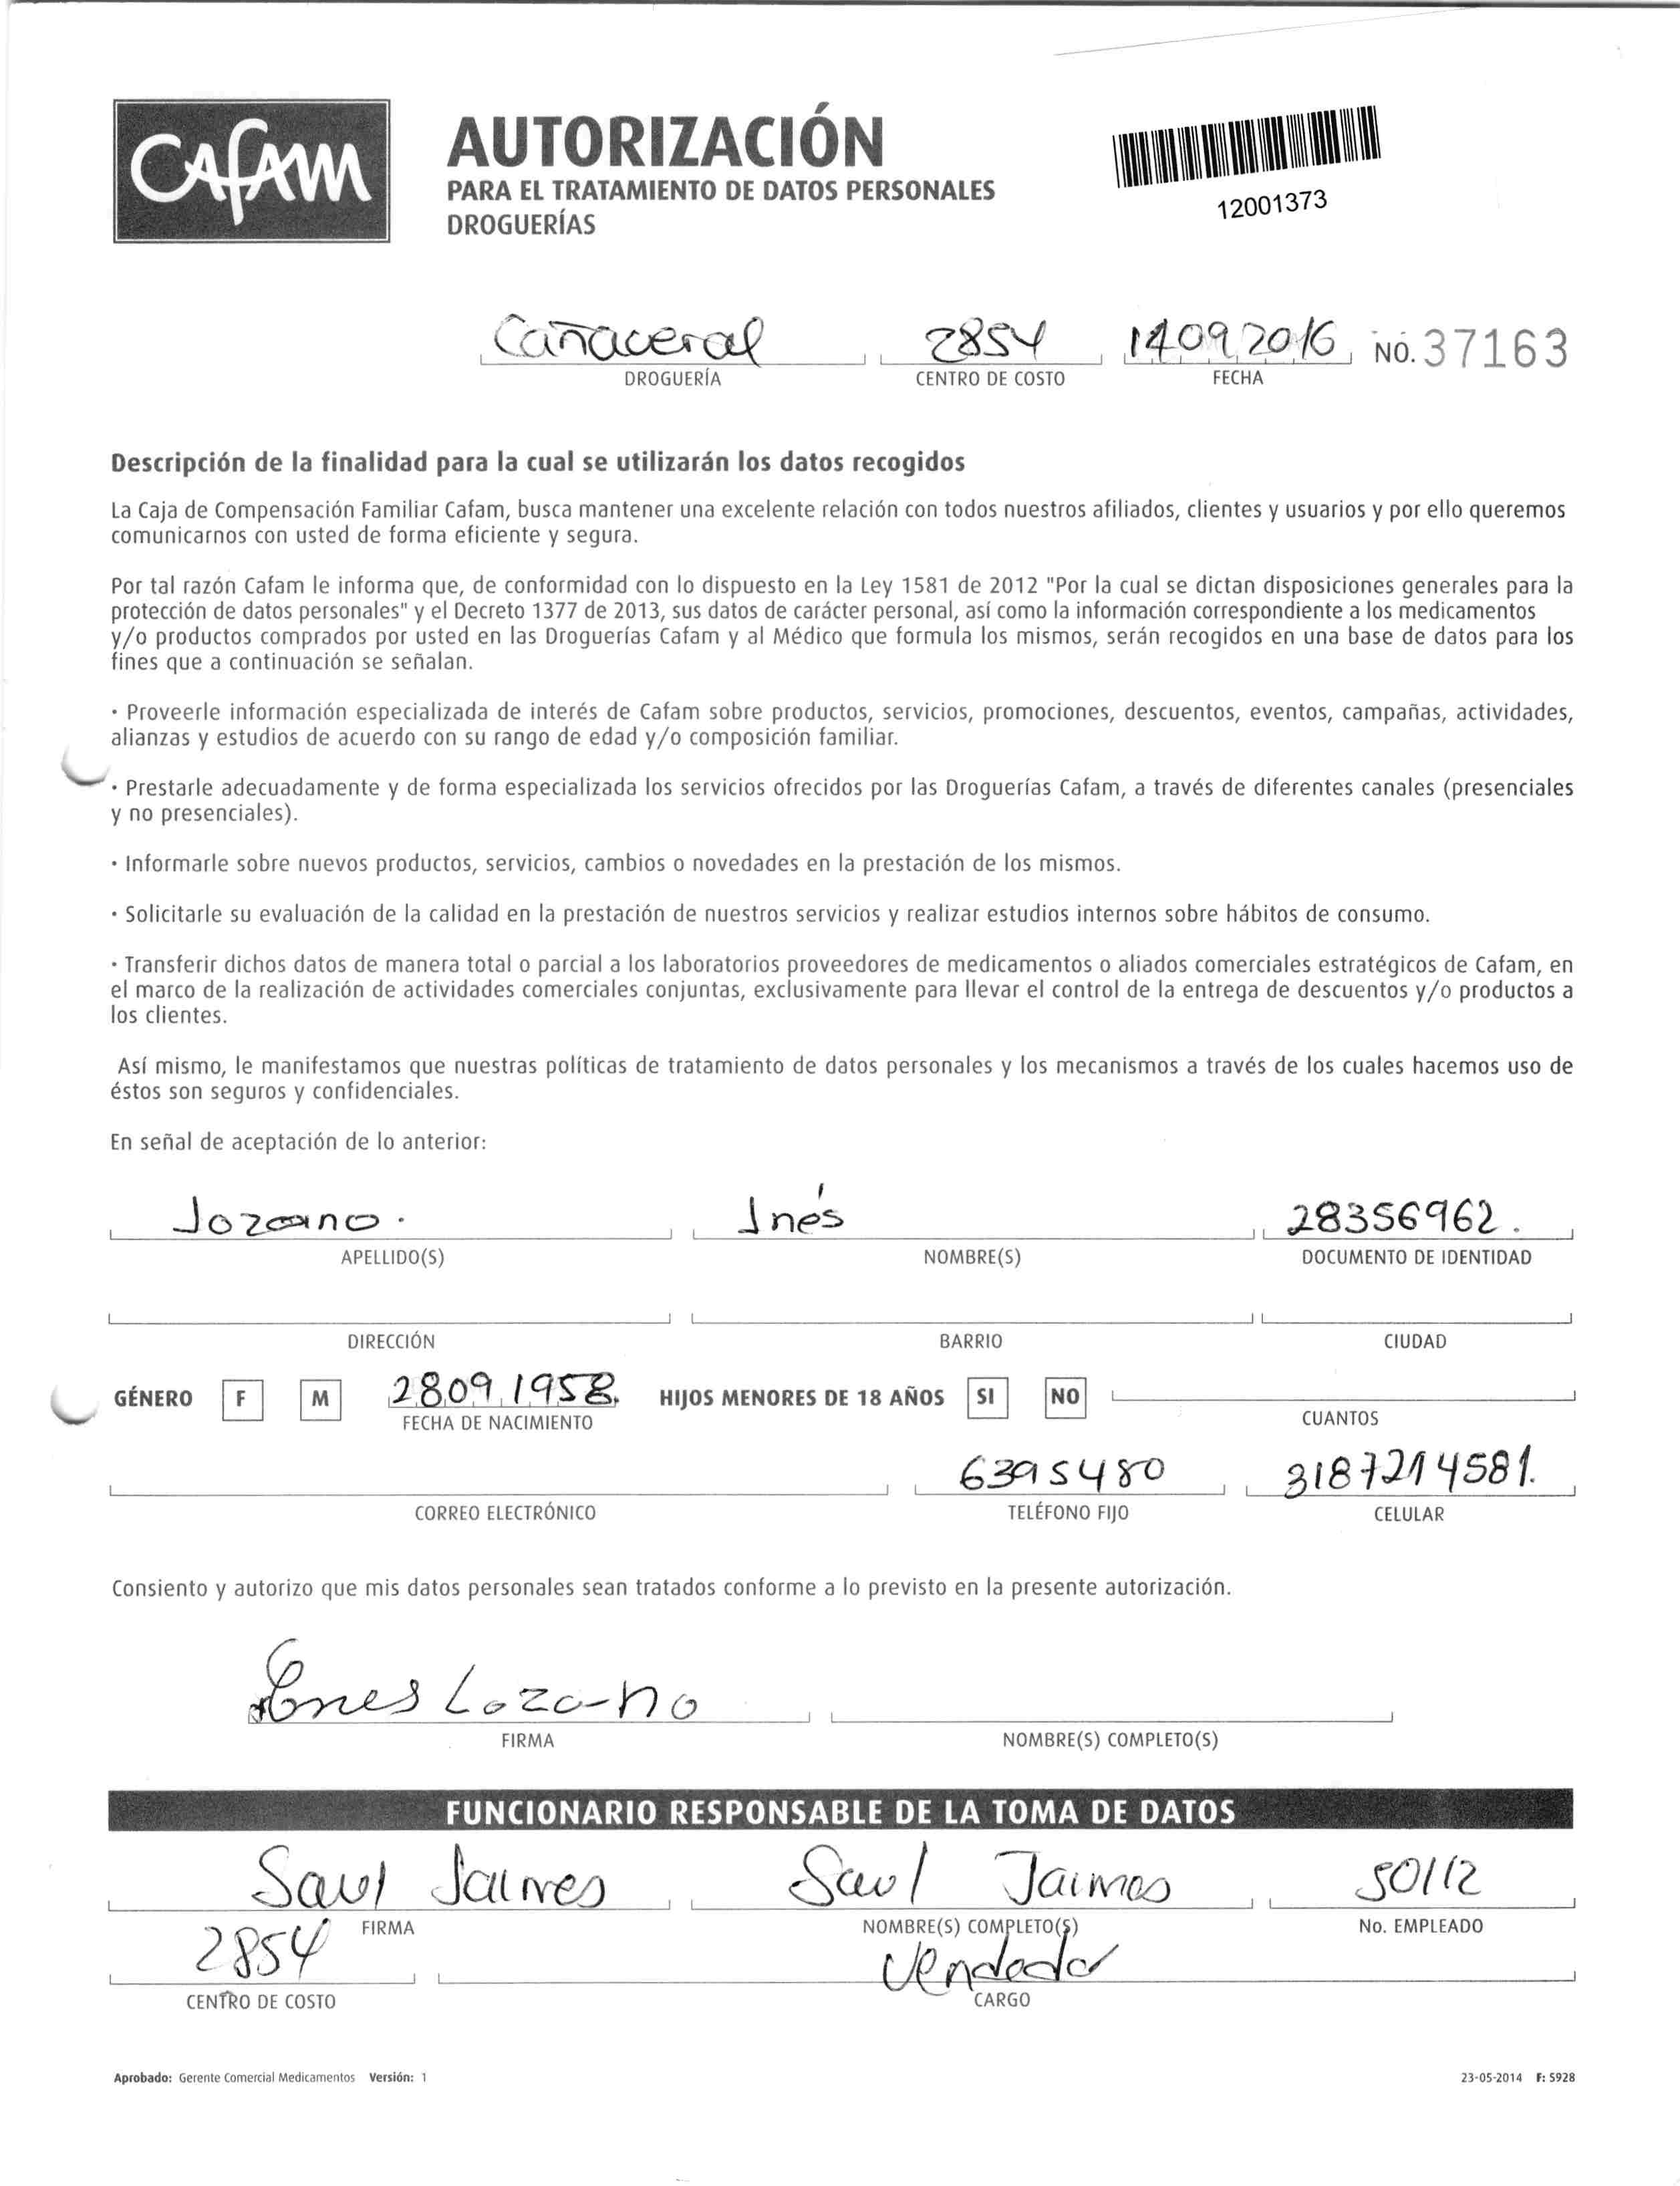 CAFAM
AUTORIZACIÓN
PARA EL TRATAMIENTO DE DATOS PERSONALES
DROGUERÍAS
12001373
Cañaveral 2854 14 09 2016 NO. 37163
DROGUERÍA CENTRO DE COSTO FECHA
Descripción de la finalidad para la cual se utilizarán los datos recogidos
La Caja de Compensación Familiar Cafam, busca mantener una excelente relación con todos nuestros afiliados, clientes y usuarios y por ello queremos
comunicarnos con usted de forma eficiente y segura.
Por tal razón Cafam le informa que, de conformidad con lo dispuesto en la Ley 1581 de 2012 "Por la cual se dictan disposiciones generales para la
protección de datos personales" y el Decreto 1377 de 2013, sus datos de carácter personal, así como la información correspondiente a los medicamentos
y/o productos comprados por usted en las Droguerías Cafam y al Médico que formula los mismos, serán recogidos en una base de datos para los
fines que a continuación se señalan.
· Proveerle información especializada de interés de Cafam sobre productos, servicios, promociones, descuentos, eventos, campañas, actividades,
alianzas y estudios de acuerdo con su rango de edad y/o composición familiar.
· Prestarle adecuadamente y de forma especializada los servicios ofrecidos por las Droguerías Cafam, a través de diferentes canales (presenciales
y no presenciales).
· Informarle sobre nuevos productos, servicios, cambios o novedades en la prestación de los mismos.
· Solicitarle su evaluación de la calidad en la prestación de nuestros servicios y realizar estudios internos sobre hábitos de consumo.
· Transferir dichos datos de manera total o parcial a los laboratorios proveedores de medicamentos o aliados comerciales estratégicos de Cafam, en
el marco de la realización de actividades comerciales conjuntas, exclusivamente para llevar el control de la entrega de descuentos y/o productos a
los clientes.
Así mismo, le manifestamos que nuestras políticas de tratamiento de datos personales y los mecanismos a través de los cuales hacemos uso de
éstos son seguros y confidenciales.
En señal de aceptación de lo anterior:
Lozano. Inés 28356962.
APELLIDO(S) NOMBRE(S) DOCUMENTO DE IDENTIDAD
DIRECCIÓN BARRIO CIUDAD
GÉNERO F M 28 09 1958. HIJOS MENORES DE 18 AÑOS SI NO
FECHA DE NACIMIENTO CUANTOS
6395480 3187214581.
CORREO ELECTRÓNICO TELÉFONO FIJO CELULAR
Consiento y autorizo que mis datos personales sean tratados conforme a lo previsto en la presente autorización.
Ines Lozano
FIRMA NOMBRE(S) COMPLETO(S)
FUNCIONARIO RESPONSABLE DE LA TOMA DE DATOS
Saul Jaimes Saul Jaimes 50112
FIRMA NOMBRE(S) COMPLETO(S) No. EMPLEADO
2854 Vendedor
CENTRO DE COSTO CARGO
Aprobado: Gerente Comercial Medicamentos Versión: 1 23-05-2014 F: 5928